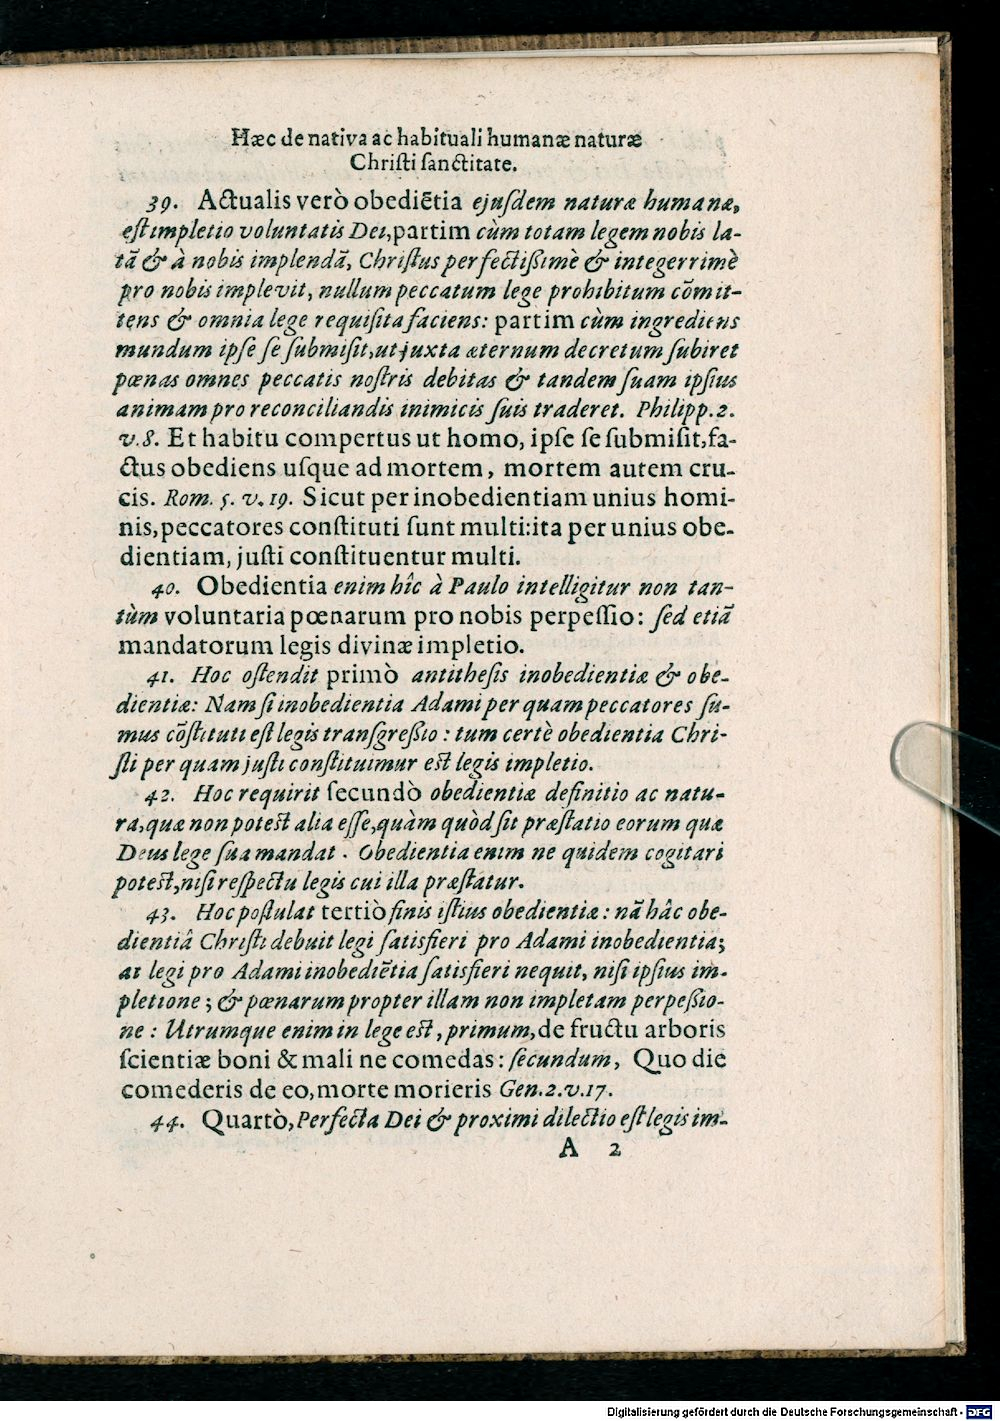 Hæc de nativa ac habituali humanæ naturæ
Christi ſanctitate.
39. Actualis verò obediẽtia ejuſdem naturæ humanæ,
eſt impletio voluntatis Dei, partim cùm totam legem nobis la-
tã & à nobis implendã, Chriſtus perfectißimè & integerrimè
pro nobis implevit, nullum peccatum lege prohibitum cõmit-
tens & omnia lege requiſita faciens: partim cùm ingrediens
mundum ipſe ſe ſubmiſit, ut juxta æternum decretum ſubiret
pœnas omnes peccatis noſtris debitas & tandem ſuam ipſius
animam pro reconciliandis inimicis ſuis traderet. Philipp. 2.
v. 8. Et habitu compertus ut homo, ipſe ſe ſubmiſit, fa-
ctus obediens uſque ad mortem, mortem autem cru-
cis. Rom. 5. v. 19. Sicut per inobedientiam unius homi-
nis, peccatores conſtituti ſunt multi: ita per unius obe-
dientiam, juſti conſtituentur multi.
40. Obedientia enim hîc à Paulo intelligitur non tan-
tùm voluntaria pœnarum pro nobis perpeſſio: ſed etiã
mandatorum legis divinæ impletio.
41. Hoc oſtendit primò antitheſis inobedientiæ & obe-
dientiæ: Nam ſi inobedientia Adami per quam peccatores ſu-
mus cõſtituti eſt legis tranſgreßio: tum certè obedientia Chri-
ſti per quam juſti conſtituimur eſt legis impletio.
42. Hoc requirit ſecundò obedientiæ definitio ac natu-
ra, quæ non poteſt alia eſſe, quàm quòd ſit præſtatio eorum quæ
Deus lege ſua mandat. Obedientia enim ne quidem cogitari
poteſt, niſi reſpectu legis cui illa præſtatur.
43. Hoc poſtulat tertiò finis iſtius obedientiæ: nã hâc obe-
dientiâ Chriſti debuit legi ſatisfieri pro Adami inobedientia;
at legi pro Adami inobediẽtia ſatisfieri nequit, niſi ipſius im-
pletione; & pœnarum propter illam non impletam perpeßio-
ne: Utrumque enim in lege eſt, primum, de fructu arboris
ſcientiæ boni & mali ne comedas: ſecundum, Quo die
comederis de eo, morte morieris Gen. 2. v. 17.
44. Quartò, Perfecta Dei & proximi dilectio eſt legis im-
A 2
Digitalisierung gefördert durch die Deutsche Forschungsgemeinschaft - DFG